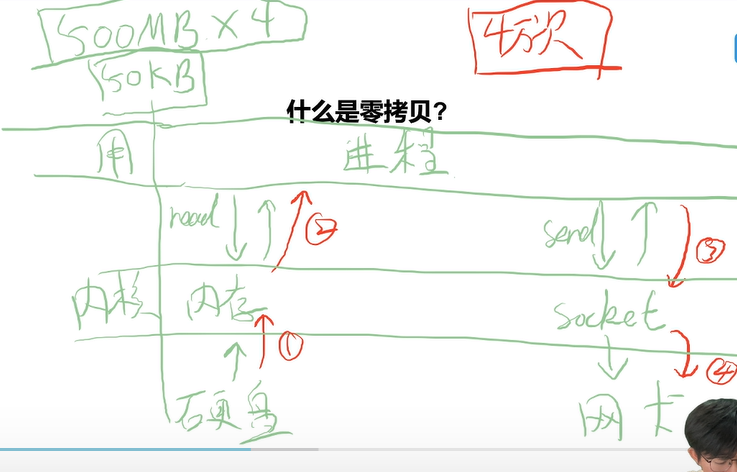 500MB × 4
4万次
50KB
什么是零拷贝?
用 进程
read ② send ③
内核 内存 socket
① ④
硬盘 网卡